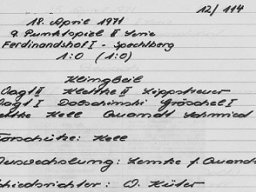 12/114
18. April 1971
9. Punktspiel II Serie
Ferdinandshof I - Spechtberg
1:0 (1:0)
Klingbeil
Voigt II Klettke II Lippstreuer
Voigt I Dobschinski Gröschel I
Hell Quandt Schmied
Torschütze: Hell
Auswechslung: Lemke f. Quandt
Schiedsrichter: O. Küter